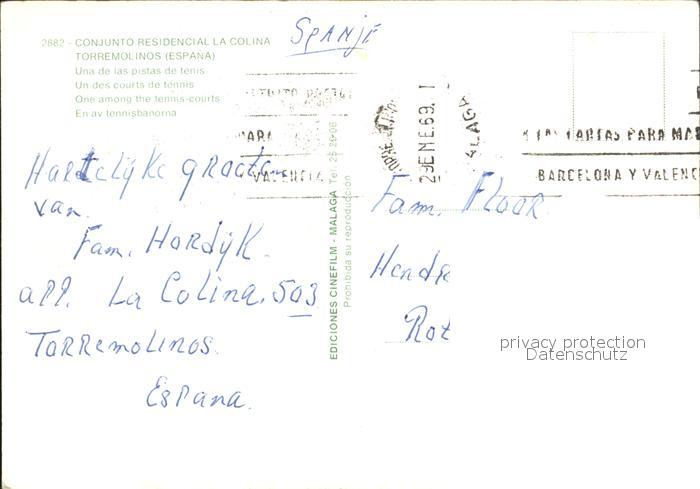 Spanje
2682 - CONJUNTO RESIDENCIAL LA COLINA
TORREMOLINOS (ESPAÑA)
Una de las pistas de tenis
Un des courts de tennis
One among the tennis-courts
En av tennisbanorna
PARA
VALENCIA
29 ENE 69
MALAGA
LAS CARTAS PARA MA
BARCELONA Y VALENC
Hartelijke groeten
van
Fam. Hordijk.
app. La Colina. 503
Torremolinos.
Espana.
EDICIONES CINEFILM - MALAGA Tel:
Prohibida su reproducción
Fam. Floor
Hendr
Rot
privacy protection
Datenschutz